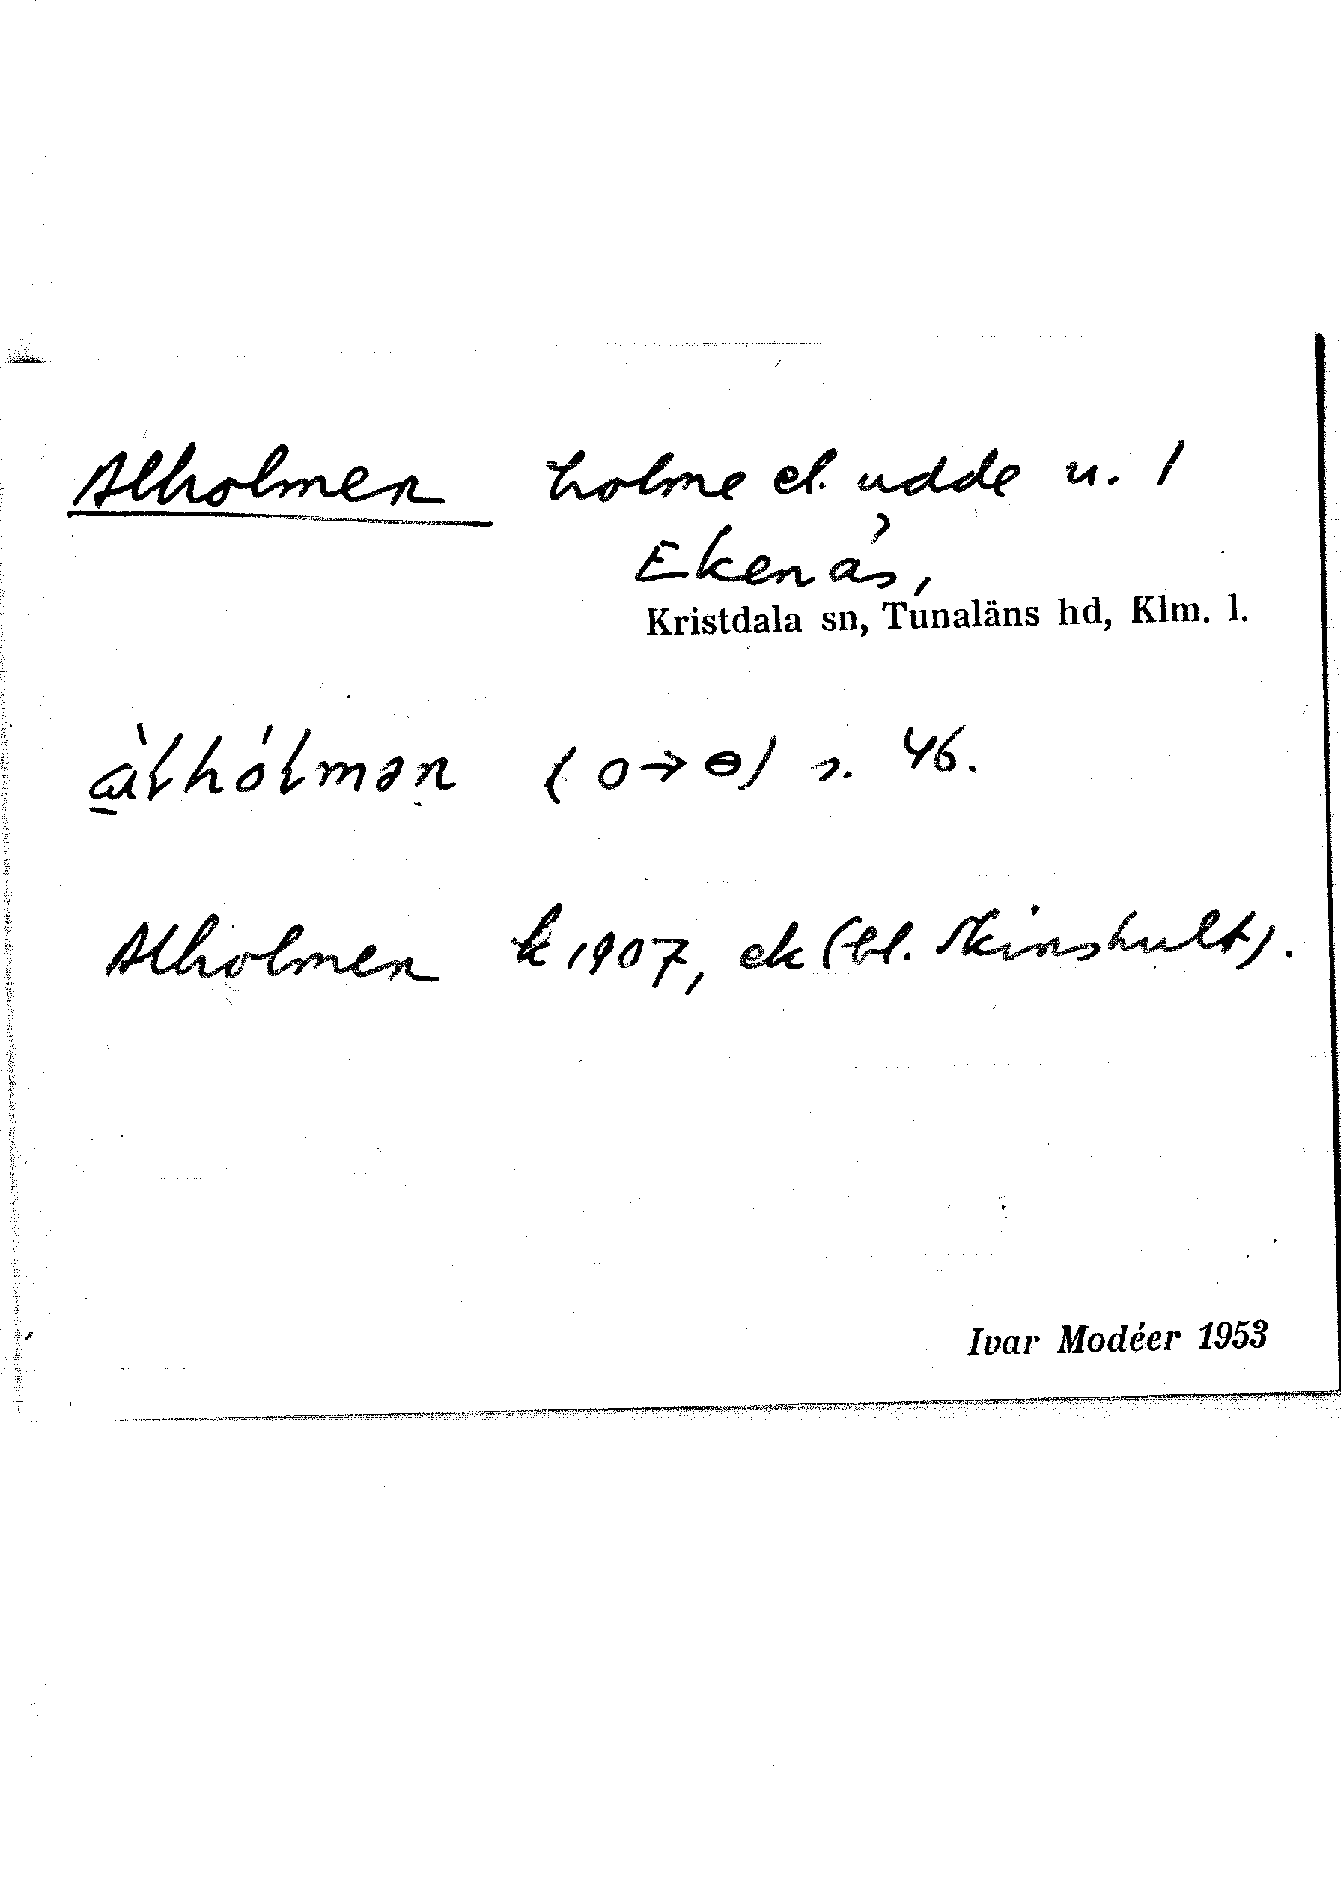 Alholmen holme el. udde u. 1
Ekenäs,
Kristdala sn, Tunaläns hd, Klm. l.
à̱lhólmən (o→ɵ) s. 46.
Alholmen k 1907, ek (bl. Skinshult).
Ivar Modéer 1953